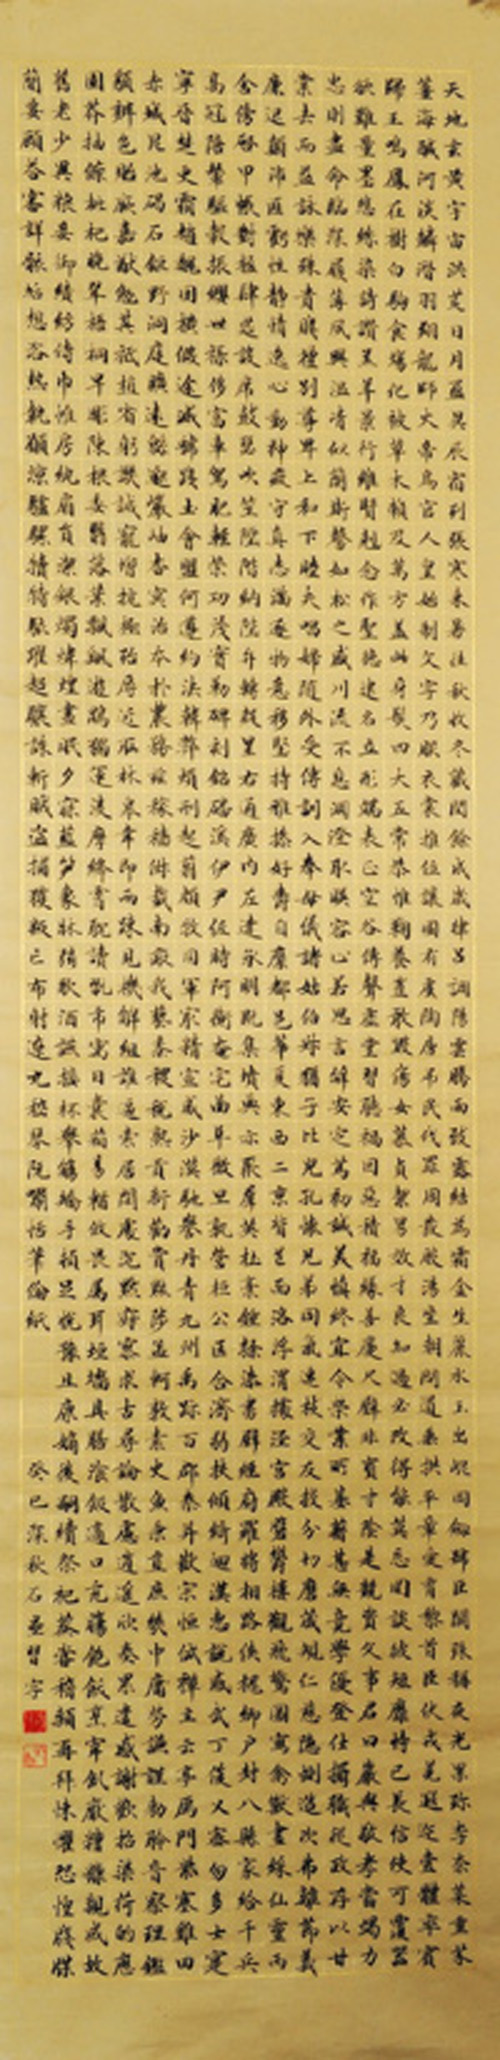 天地玄黃宇宙洪荒日月盈昃辰宿列張寒来暑往秋收冬藏閏餘成歲律呂調陽雲騰而致露結為霜金生麗水玉出崐岡劍號巨闕珠稱夜光果珍李柰菜重芥
薑海鹹河淡鱗潛羽翔龍師火帝鳥官人皇始制文字乃服衣裳推位讓國有虞陶唐弔民伐罪周發殷湯坐朝問道垂拱平章愛育黎首臣伏戎羌遐迩壹體率賓
歸王鳴鳳在樹白駒食場化被草木賴及萬方盖此身髮四大五常恭惟鞠養豈敢毀傷女慕貞絜男效才良知過必改得能莫忘罔談彼短靡恃己長信使可覆器
欲難量墨悲絲染詩讚羔羊景行維賢尅念作聖德建名立形端表正空谷傳聲虛堂習聽禍因惡積福緣善慶尺璧非寶寸陰是競資父事君曰嚴與敬孝當竭力
忠則盡命臨深履薄夙興溫凊似蘭斯馨如松之盛川流不息淵澄取映容止若思言辭安定篤初誠美慎終宜令榮業所基籍甚無竟學優登仕攝職從政存以甘
棠去而益詠樂殊貴賤禮別尊卑上和下睦夫唱婦隨外受傅訓入奉母儀諸姑伯叔猶子比兒孔懷兄弟同氣連枝交友投分切磨箴規仁慈隱惻造次弗離節義
廉退顛沛匪虧性靜情逸心動神疲守真志滿逐物意移堅持雅操好爵自縻都邑華夏東西二京背芒面洛浮渭據涇宮殿盤鬱樓觀飛驚圖寫禽獸畫綵仙靈丙
舍傍啓甲帳對楹肆筵設席鼓瑟吹笙陞階納陛弁轉疑星右通廣內左達承明既集墳典亦聚群英杜稾鍾隸漆書壁經府羅將相路俠槐卿户封八縣家給千兵
高冠陪輦驅轂振纓世祿侈富車駕肥輕策功茂實勒碑刻銘磻溪伊尹佐時阿衡奄宅曲阜微旦孰營桓公匡合濟弱扶傾綺迴漢惠説感武丁俊乂密勿多士寔
寧晉楚更霸趙魏困橫假途滅虢踐土會盟何遵約法韓弊煩刑起翦頗牧用軍最精宣威沙漠馳譽丹青九州禹跡百郡秦并嶽宗恒岱禪主云亭雁門紫塞雞田
赤城昆池碣石鉅野洞庭曠遠綿邈巖岫杳冥治本於農務兹稼穡俶載南畝我藝黍稷稅熟貢新勸賞黜陟孟軻敦素史魚秉直庶幾中庸勞謙謹勑聆音察理鑑
貌辨色貽厥嘉猷勉其祗植省躬譏誡寵增抗極殆辱近恥林皋幸即兩疎見機解組誰逼索居閒處沉默寂寥求古尋論散慮逍遥欣奏累遣慼謝歡招渠荷的歷
園莽抽條枇杷晚翠梧桐早凋陳根委翳落葉飄颻遊鵾獨運淩摩絳霄耽讀翫市寓目囊箱易輶攸畏屬耳垣墻具膳飡飯適口充腸飽飫烹宰飢厭糟糠親戚故
舊老少異粮妾御績紡侍巾帷房紈扇圓潔銀燭煒煌晝眠夕寐藍笋象牀絃歌酒讌接杯舉觴矯手頓足悅豫且康嫡後嗣續祭祀蒸嘗稽顙再拜悚懼恐惶牋牒
簡要顧答審詳骸垢想浴執熱願涼驢騾犢特駭躍超驤誅斬賊盜捕獲叛亡布射遼丸嵇琴阮嘯恬筆倫紙
癸巳深秋石習字